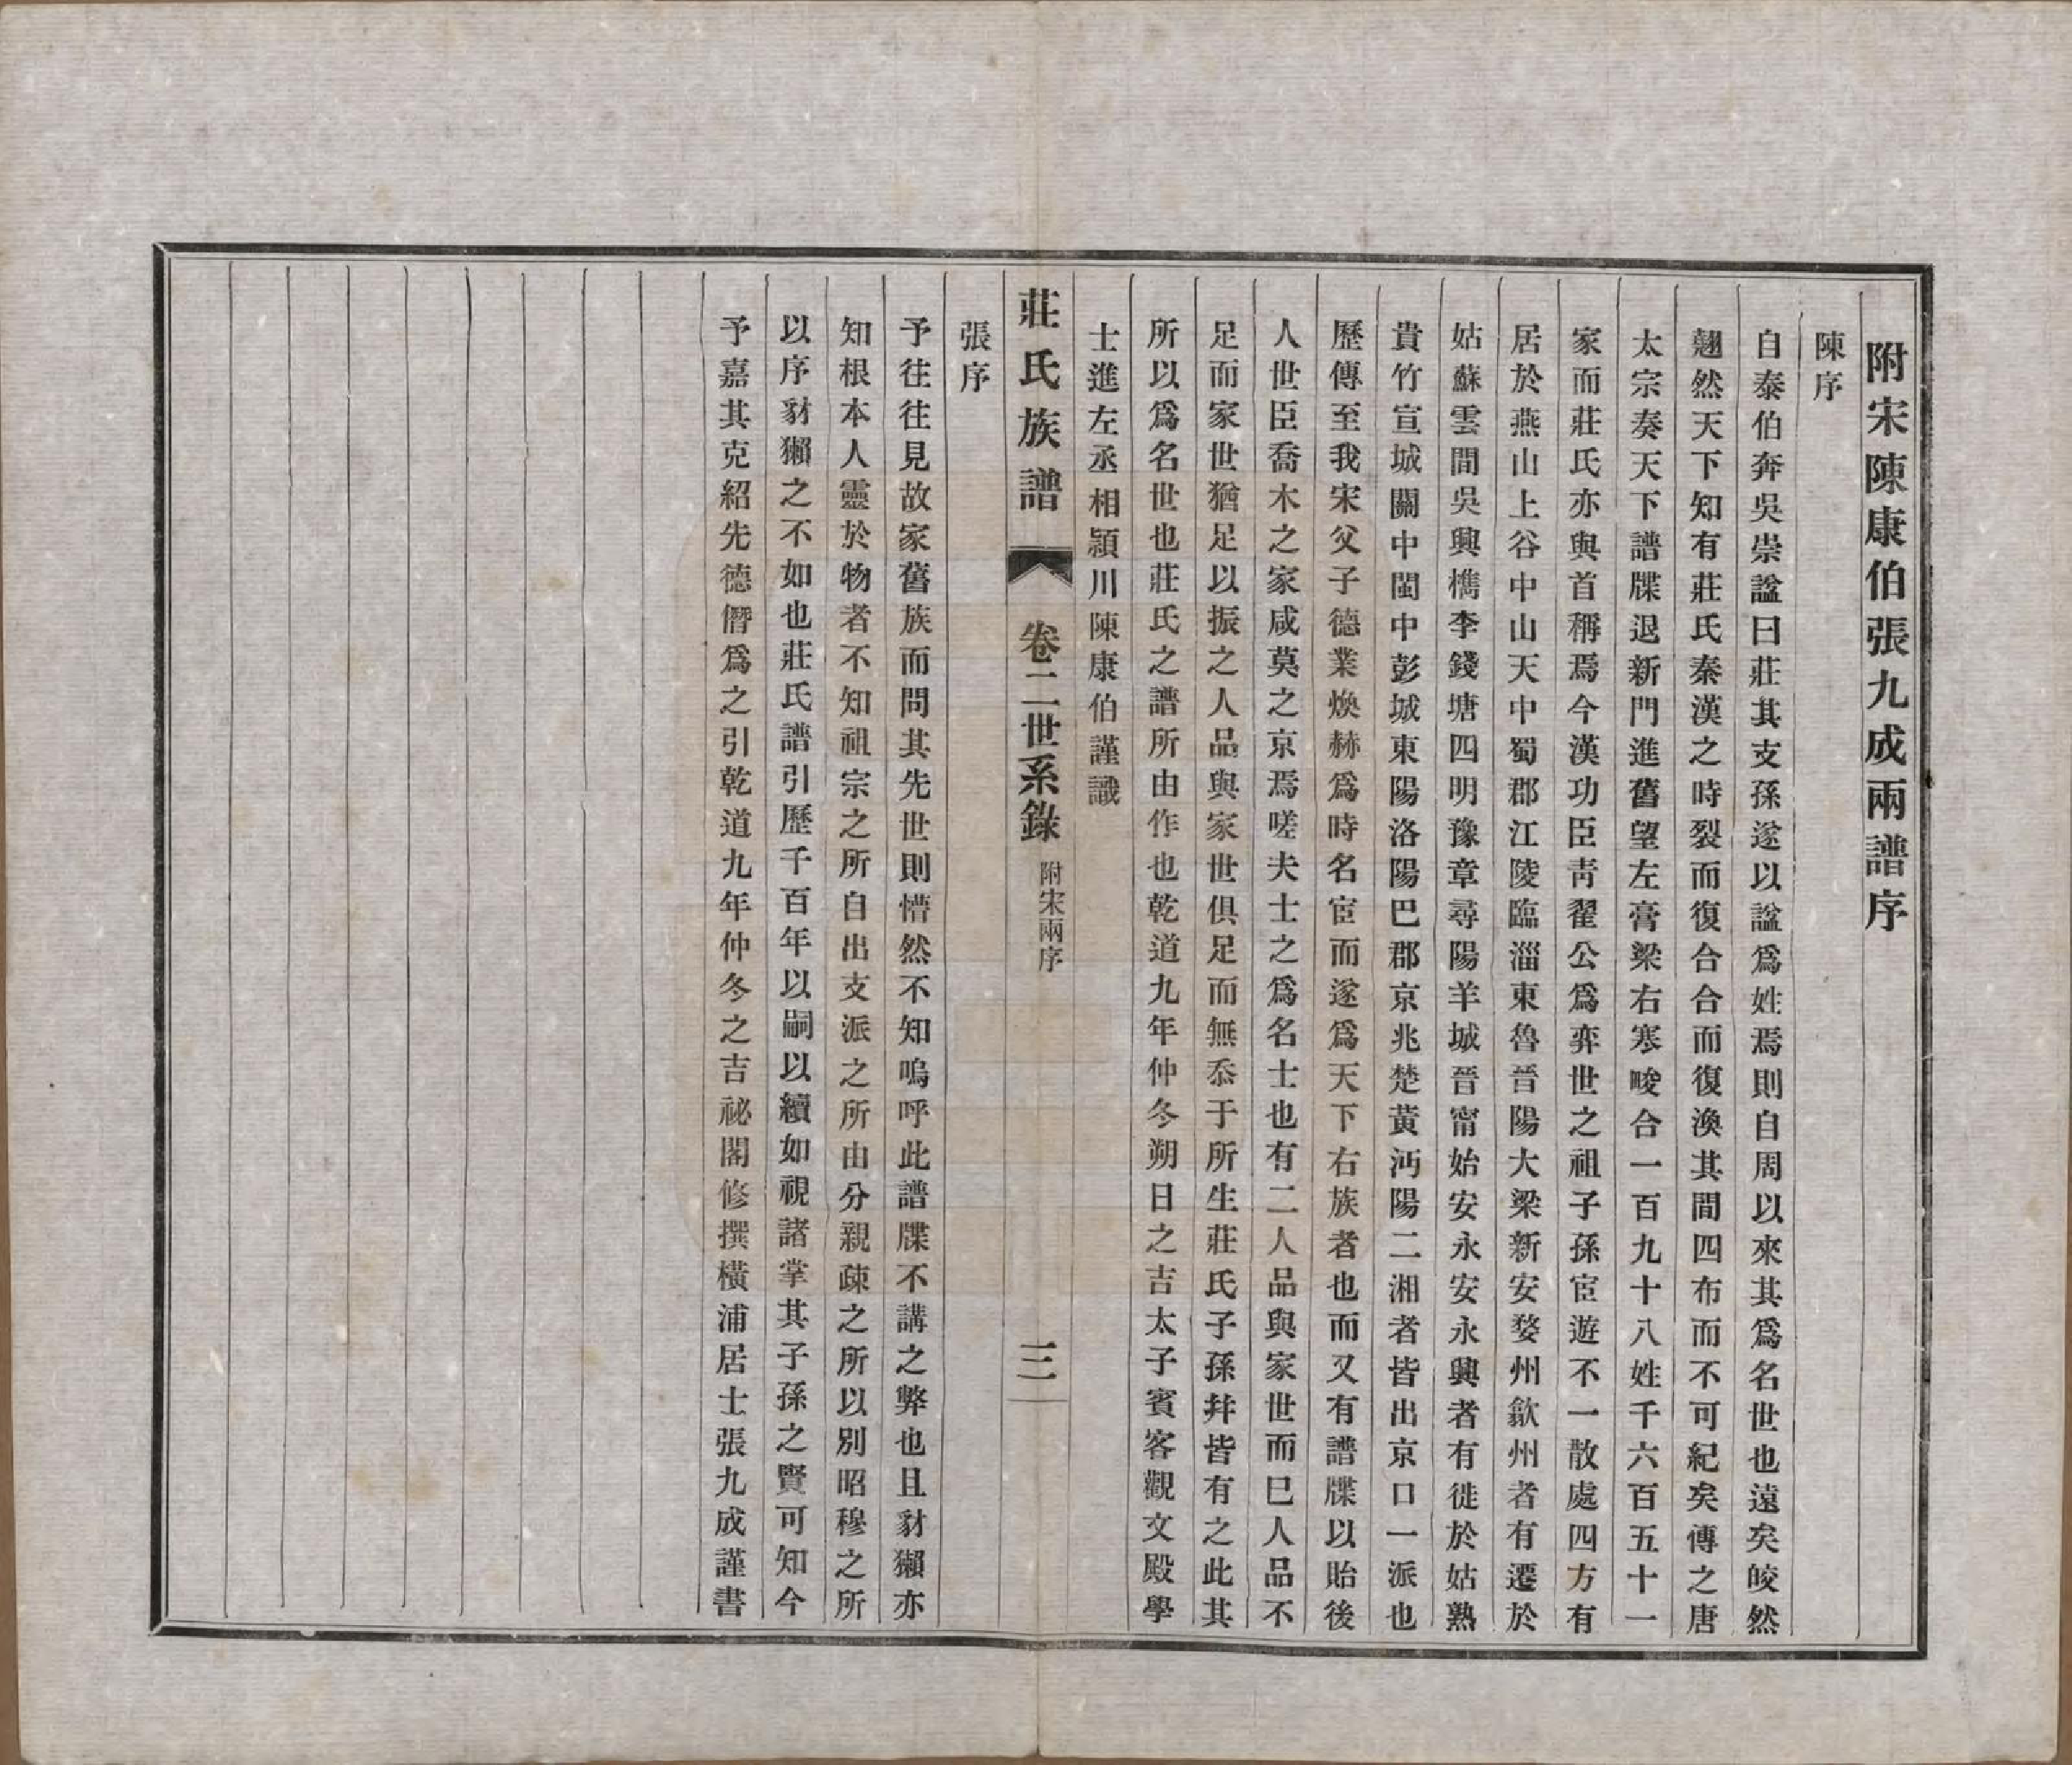 附宋陳康伯張九成兩譜序
陳序
自泰伯奔吳崇諡曰莊其支孫遂以諡爲姓焉則自周以來其爲名世也遠矣皎然
翹然天下知有莊氏秦漢之時裂而復合合而復渙其間四布而不可紀矣傳之唐
太宗奏天下譜牒退新門進舊望左膏粱右寒畯合一百九十八姓千六百五十一
家而莊氏亦與首稱焉今漢功臣靑翟公爲弈世之祖子孫宦遊不一散處四方有
居於燕山上谷中山天中蜀郡江陵臨淄東魯晉陽大梁新安婺州歙州者有遷於
姑蘇雲間吳興檇李錢塘四明豫章尋陽羊城晉甯始安永安永興者有徙於姑熟
貴竹宣城關中閩中彭城東陽洛陽巴郡京兆楚黃沔陽二湘者皆出京口一派也
歷傳至我宋父子德業煥赫爲時名宦而遂爲天下右族者也而又有譜牒以貽後
人世臣喬木之家咸莫之京焉嗟夫士之爲名士也有二人品與家世而巳人品不
足而家世猶足以振之人品與家世俱足而無忝于所生莊氏子孫幷皆有之此其
所以爲名世也莊氏之譜所由作也乾道九年仲冬朔日之吉太子賓客觀文殿學
士進左丞相潁川陳康伯謹識
莊氏族譜 卷二世系錄 附宋兩序 三
張序
予往往見故家舊族而問其先世則懵然不知嗚呼此譜牒不講之弊也且豺獺亦
知根本人靈於物者不知祖宗之所自出支派之所由分親疎之所以別昭穆之所
以序豺獺之不如也莊氏譜引歷千百年以嗣以續如視諸掌其子孫之賢可知今
予嘉其克紹先德僭爲之引乾道九年仲冬之吉祕閣修撰橫浦居士張九成謹書